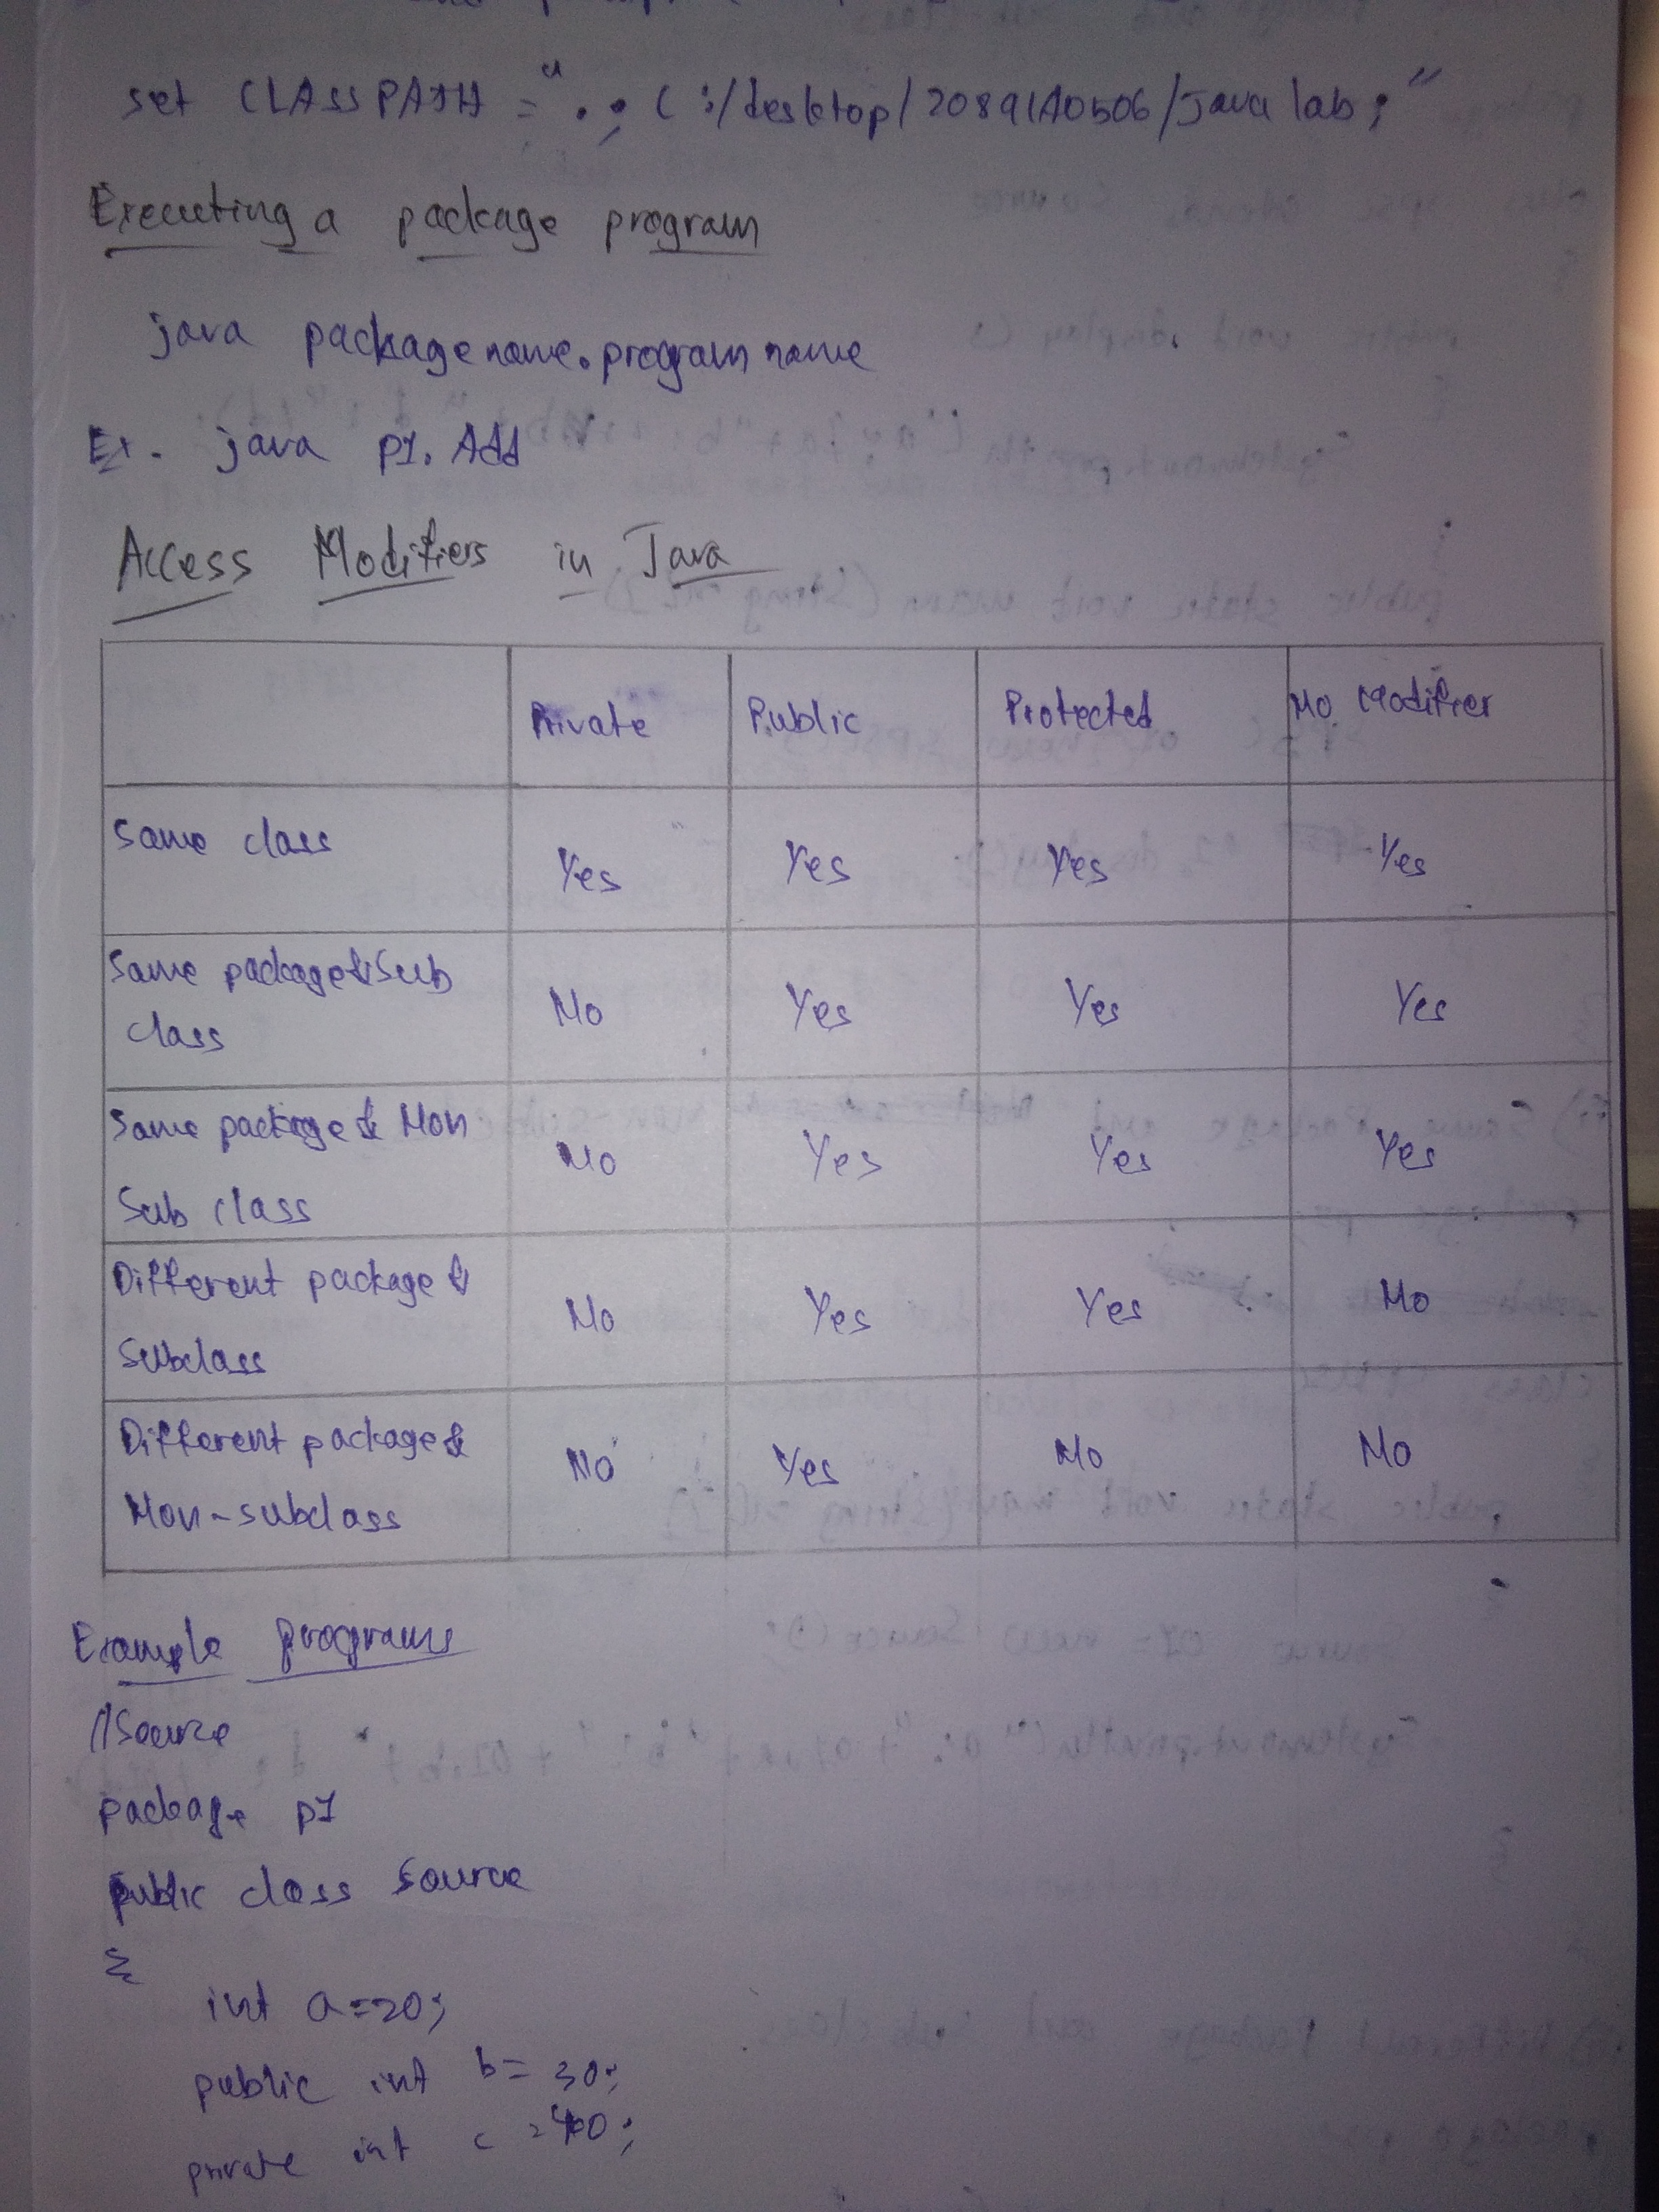 set CLASSPATH = ".; C:/desktop/20891A0506/Java lab;"
Executing a package program
java package name.program name
Ex. java p1.Add
Access Modifiers in Java
Private Public Protected No Modifier
Same class Yes Yes Yes Yes
Same package & Sub
class No Yes Yes Yes
Same package & Non
Sub class No Yes Yes Yes
Different package &
Subclass No Yes Yes No
Different package &
Non-subclass No Yes No No
Example programs
//Source
package p1
public class Source
{
int a=20;
public int b= 30;
private int c =40;